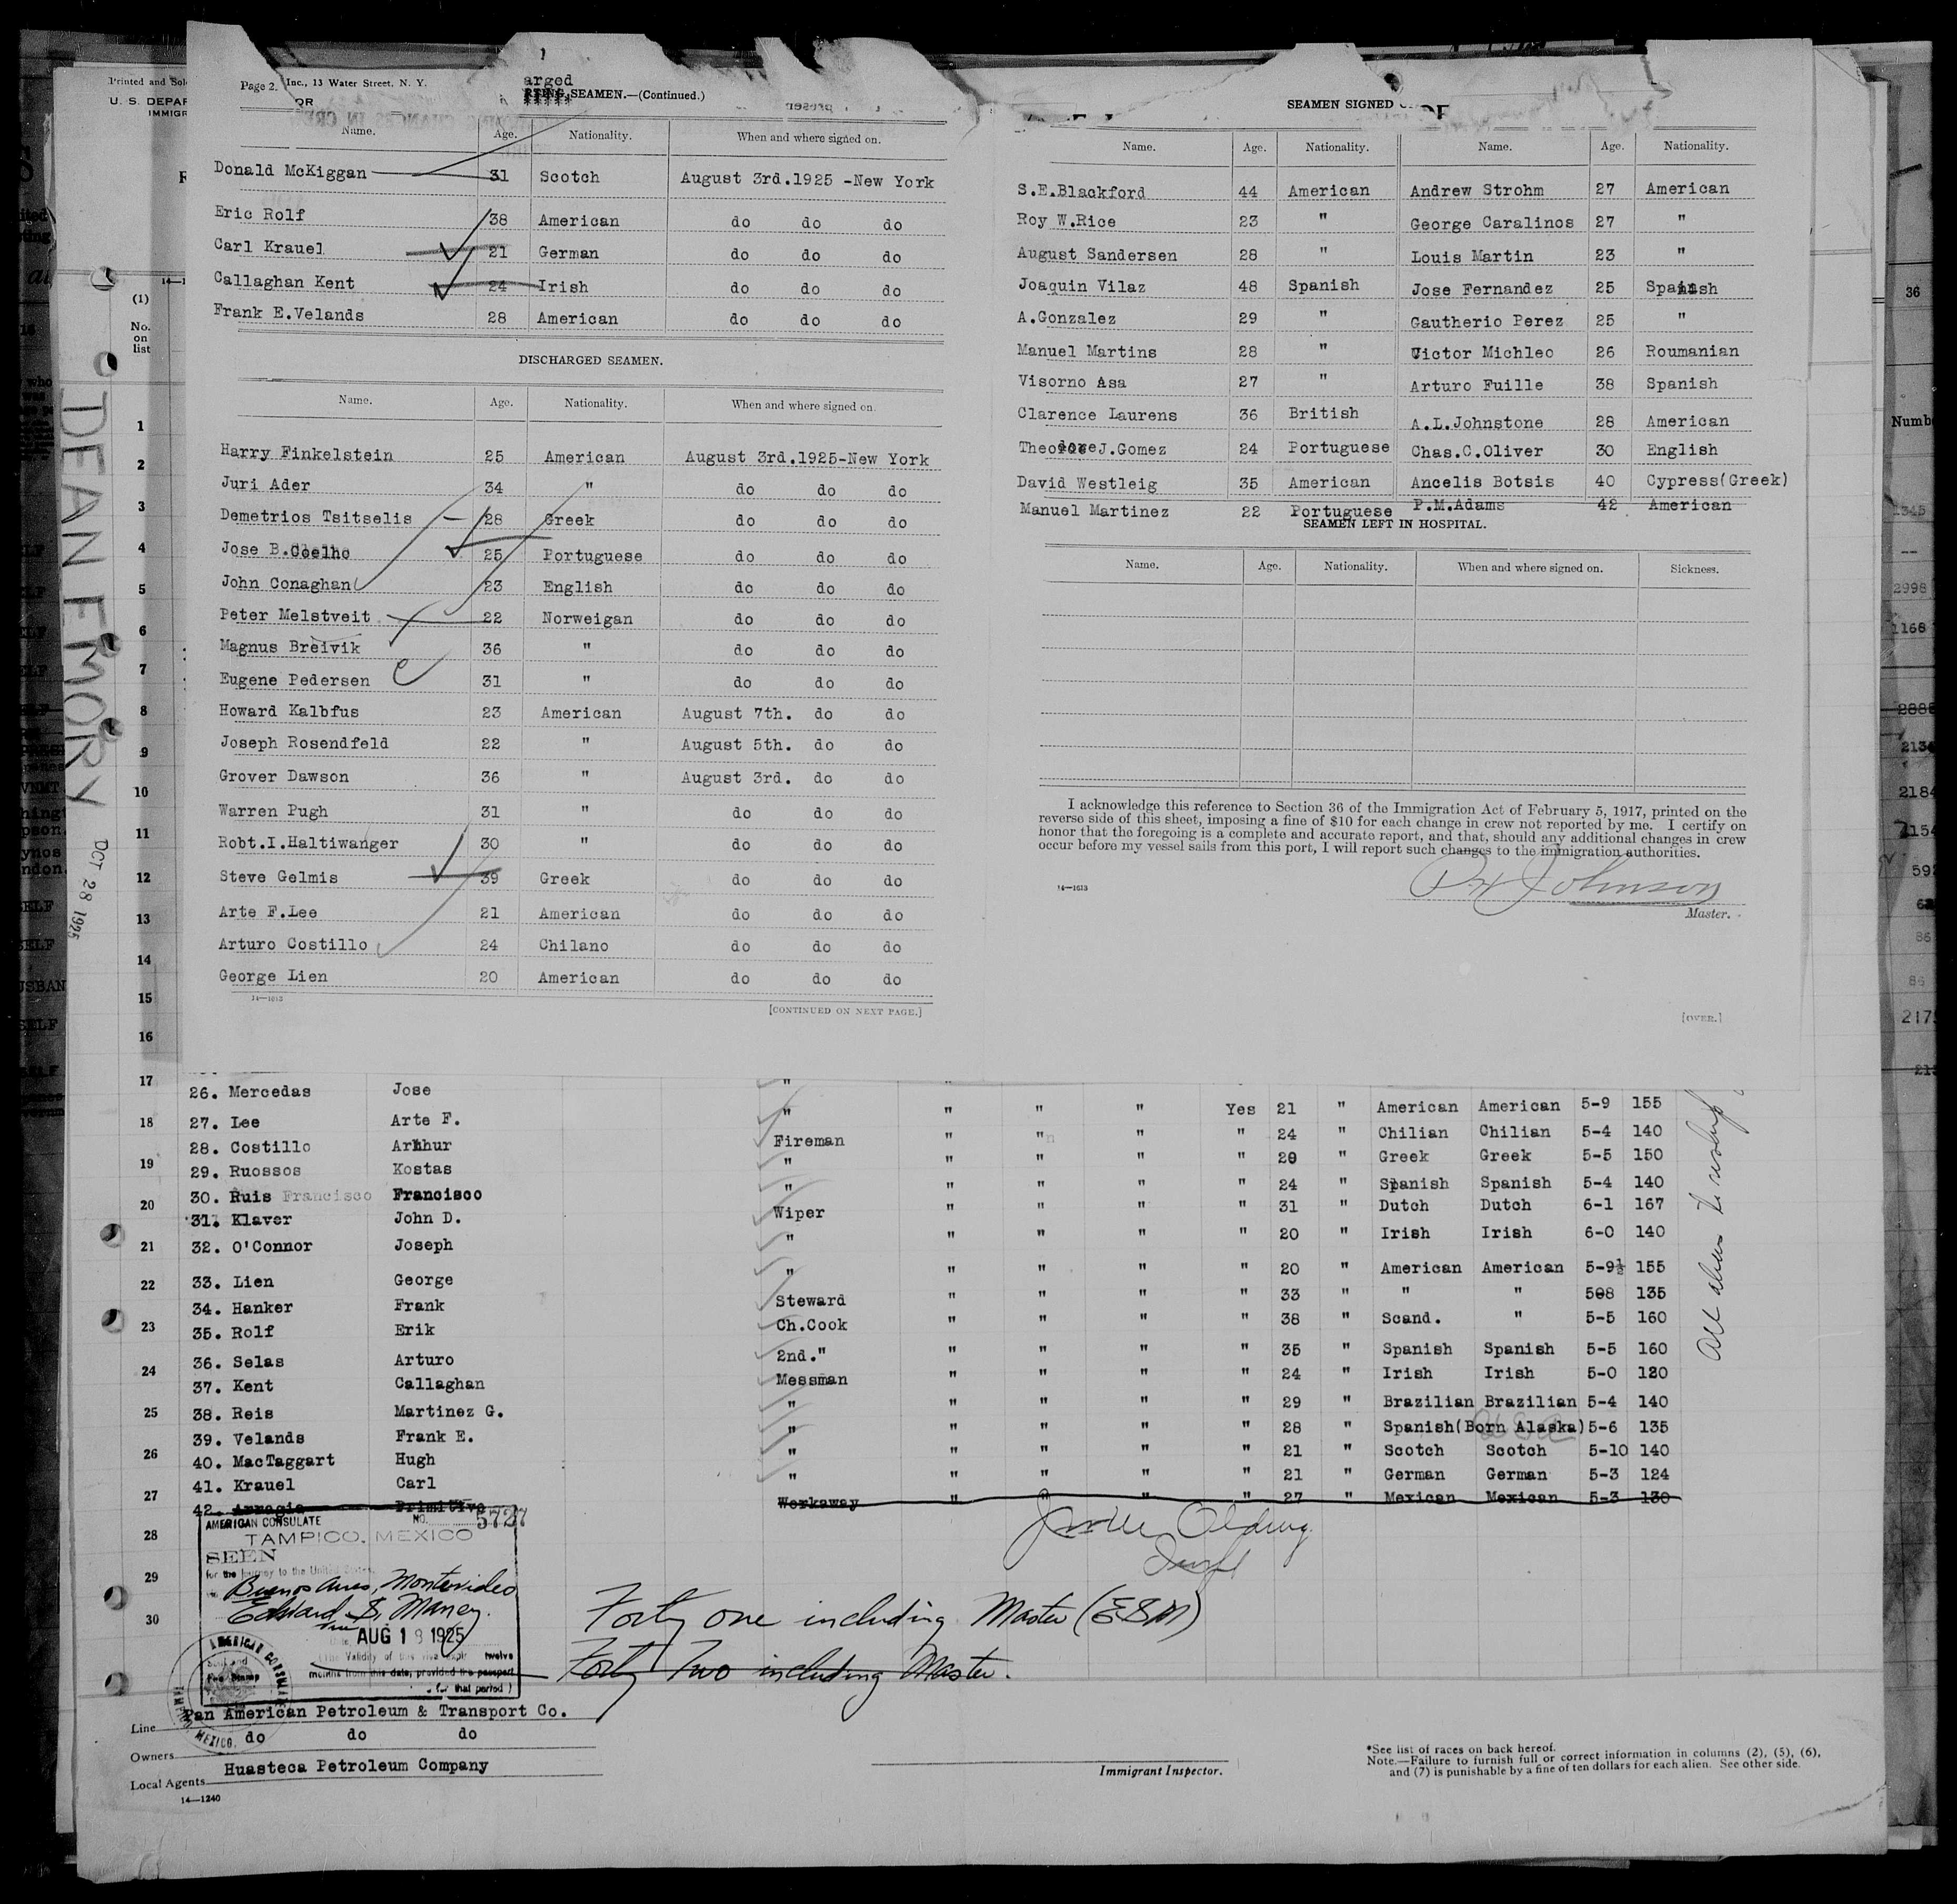 Page 2.
Inc., 13 Water Street, N. Y.
arged
SEAMEN.—(Continued.)
Name. Age. Nationality. When and where signed on.
Donald McKiggan 31 Scotch August 3rd.1925 -New York
Eric Rolf 38 American do do do
Carl Krauel 21 German do do do
Callaghan Kent 24 Irish do do do
Frank E.Velands 28 American do do do
DISCHARGED SEAMEN.
Name. Age. Nationality. When and where signed on.
Harry Finkelstein 25 American August 3rd.1925-New York
Juri Ader 34 " do do do
Demetrios Tsitselis 28 Greek do do do
Jose B.Coelho 25 Portuguese do do do
John Conaghan 23 English do do do
Peter Melstveit 22 Norweigan do do do
Magnus Breivik 36 " do do do
Eugene Pedersen 31 " do do do
Howard Kalbfus 23 American August 7th. do do
Joseph Rosendfeld 22 " August 5th. do do
Grover Dawson 36 " August 3rd. do do
Warren Pugh 31 " do do do
Robt.I.Haltiwanger 30 " do do do
Steve Gelmis 39 Greek do do do
Arte F.Lee 21 American do do do
Arturo Costillo 24 Chilano do do do
George Lien 20 American do do do
14—1613
[CONTINUED ON NEXT PAGE.]
SEAMEN SIGNED
Name. Age. Nationality. Name. Age. Nationality.
S.E.Blackford 44 American Andrew Strohm 27 American
Roy W.Rice 23 " George Caralinos 27 "
August Sandersen 28 " Louis Martin 23 "
Joaquin Vilaz 48 Spanish Jose Fernandez 25 Spanish
A.Gonzalez 29 " Gautherio Perez 25 "
Manuel Martins 28 " Victor Michleo 26 Roumanian
Visorno Asa 27 " Arturo Fuille 38 Spanish
Clarence Laurens 36 British A.L.Johnstone 28 American
Theodore J.Gomez 24 Portuguese Chas.C.Oliver 30 English
David Westleig 35 American Ancelis Botsis 40 Cypress(Greek)
Manuel Martinez 22 Portuguese P.M.Adams 42 American
SEAMEN LEFT IN HOSPITAL.
Name. Age. Nationality. When and where signed on. Sickness.
I acknowledge this reference to Section 36 of the Immigration Act of February 5, 1917, printed on the
reverse side of this sheet, imposing a fine of $10 for each change in crew not reported by me. I certify on
honor that the foregoing is a complete and accurate report, and that, should any additional changes in crew
occur before my vessel sails from this port, I will report such changes to the immigration authorities.
Johnson
14—1613
Master.
[OVER.]
Printed and Sol
U. S. DEPAR
IMMIGR
(1)
No. on list
DEAN EMORY OCT 28 1925
1
2
3
4
5
6
7
8
9
10
11
12
13
14
15
16
17
18
19
20
21
22
23
24
25
26
27
28
29
30
26. Mercedas Jose "
27. Lee Arte F. " " " " Yes 21 " American American 5-9 155
28. Costillo Arthur Fireman " " " " 24 " Chilian Chilian 5-4 140
29. Ruossos Kostas " " " " " 29 " Greek Greek 5-5 150
30. Ruis Francisco Francisco " " " " " 24 " Spanish Spanish 5-4 140
31. Klaver John D. Wiper " " " " 31 " Dutch Dutch 6-1 167
32. O'Connor Joseph " " " " " 20 " Irish Irish 6-0 140
33. Lien George " " " " " 20 " American American 5-9½ 155
34. Hanker Frank Steward " " " " 33 " " " 508 135
35. Rolf Erik Ch.Cook " " " " 38 " Scand. " 5-5 160
36. Selas Arturo 2nd." " " " " 35 " Spanish Spanish 5-5 160
37. Kent Callaghan Messman " " " " 24 " Irish Irish 5-0 120
38. Reis Martinez G. " " " " " 29 " Brazilian Brazilian 5-4 140
39. Velands Frank E. " " " " " 28 " Spanish(Born Alaska) 5-6 135
40. MacTaggart Hugh " " " " " 21 " Scotch Scotch 5-10 140
41. Krauel Carl " " " " " 21 " German German 5-3 124
42. Primitivo Workaway " " " " 27 " Mexican Mexican 5-3 130
AMERICAN CONSULATE NO. 5727
TAMPICO, MEXICO
SEEN
for the journey to the United States,
Buenos Aires, Montevideo
Edward S. Maney.
AUG 18 1925
months from this date, provided the passport
for that period)
Forty one including Master (ESM)
Forty Two including Master.
Line Pan American Petroleum & Transport Co.
Owners do do do
Local Agents Huasteca Petroleum Company
14—1240
Immigrant Inspector.
*See list of races on back hereof.
Note.—Failure to furnish full or correct information in columns (2), (5), (6),
and (7) is punishable by a fine of ten dollars for each alien. See other side.
36
Numb
1345
2998
1168
2184